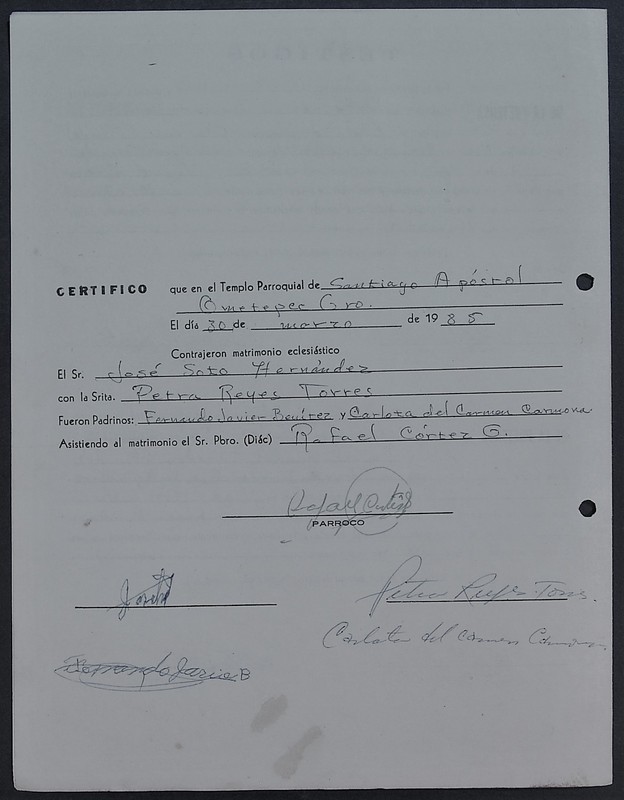 CERTIFICO que en el Templo Parroquial de Santiago Apóstol
Ometepec Gro.
El día 30 de marzo de 1985
Contrajeron matrimonio eclesiástico
El Sr. José Soto Hernández
con la Srita. Petra Reyes Torres
Fueron Padrinos: Fernando Javier Benítez y Carlota del Carmen Carmona
Asistiendo al matrimonio el Sr. Pbro. (Diác) Rafael Córtez G.
Rafael
PARROCO
Petra Reyes Torres.
Carlota del Carmen
Fernando Javier B